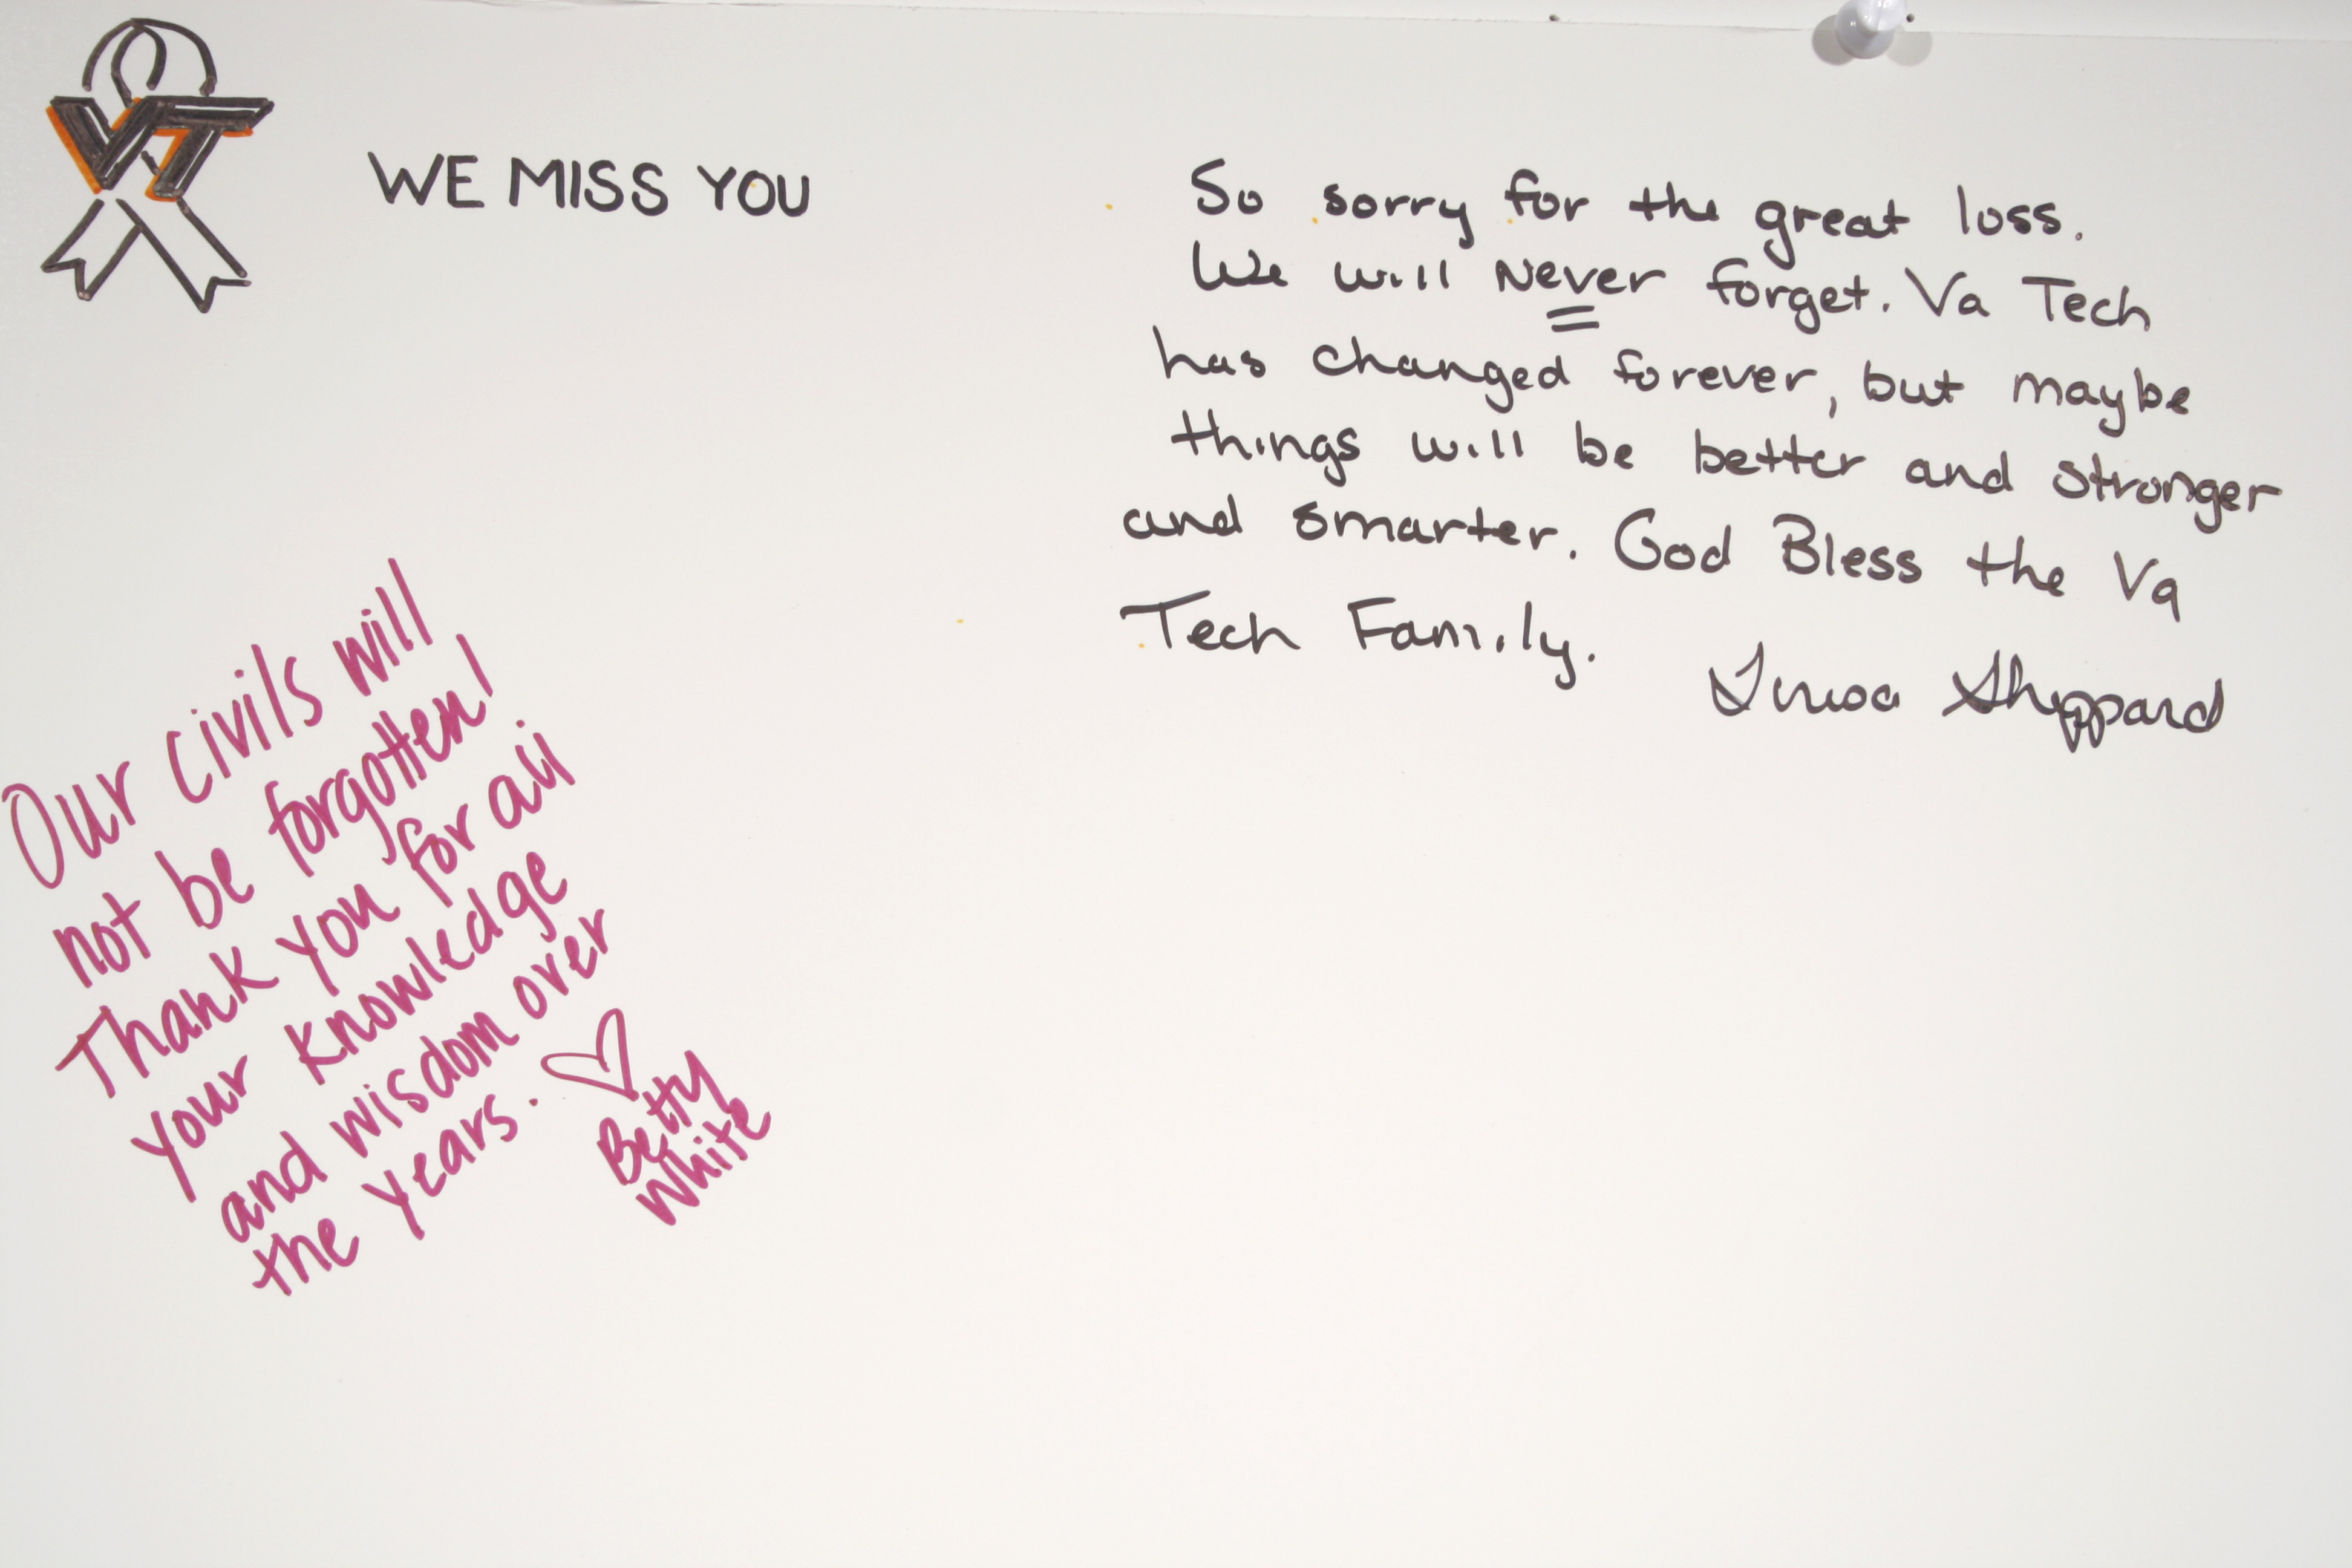 VT
WE MISS YOU
So sorry for the great loss.
We will Never forget. Va Tech
has changed forever, but maybe
things will be better and stronger
and smarter. God Bless the Va
Tech Family.
Teresa Sheppard
Our civils will
not be forgotten!
Thank you for all
your knowledge
and wisdom over
the years. ♡
Betty
White